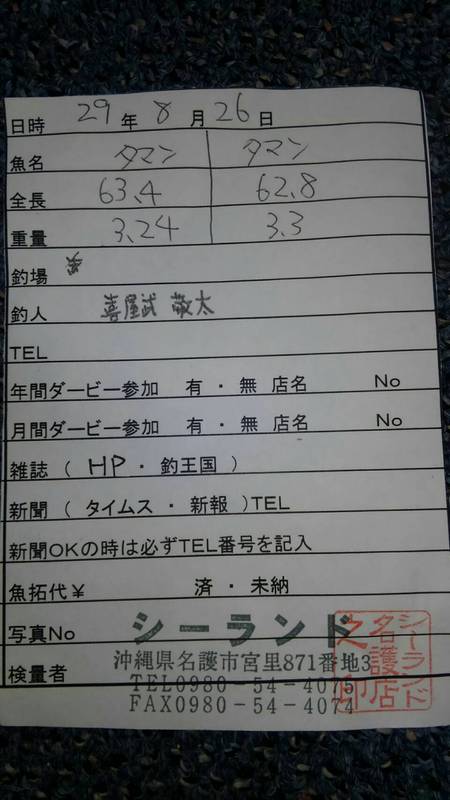 日時 29 年 8 月 26 日
魚名 タマン タマン
全長 63.4 62.8
重量 3.24 3.3
釣場
釣人 喜屋武 敬太
TEL
年間ダービー参加 有 ・ 無 店名 No
月間ダービー参加 有 ・ 無 店名 No
雑誌 ( HP ・ 釣王国 )
新聞 ( タイムス ・ 新報 )TEL
新聞OKの時は必ずTEL番号を記入
魚拓代¥ 済 ・ 未納
写真No シーランド
検量者 沖縄県名護市宮里871番地3
TEL0980-54-4075
FAX0980-54-4074
シーランド
名護店
之印